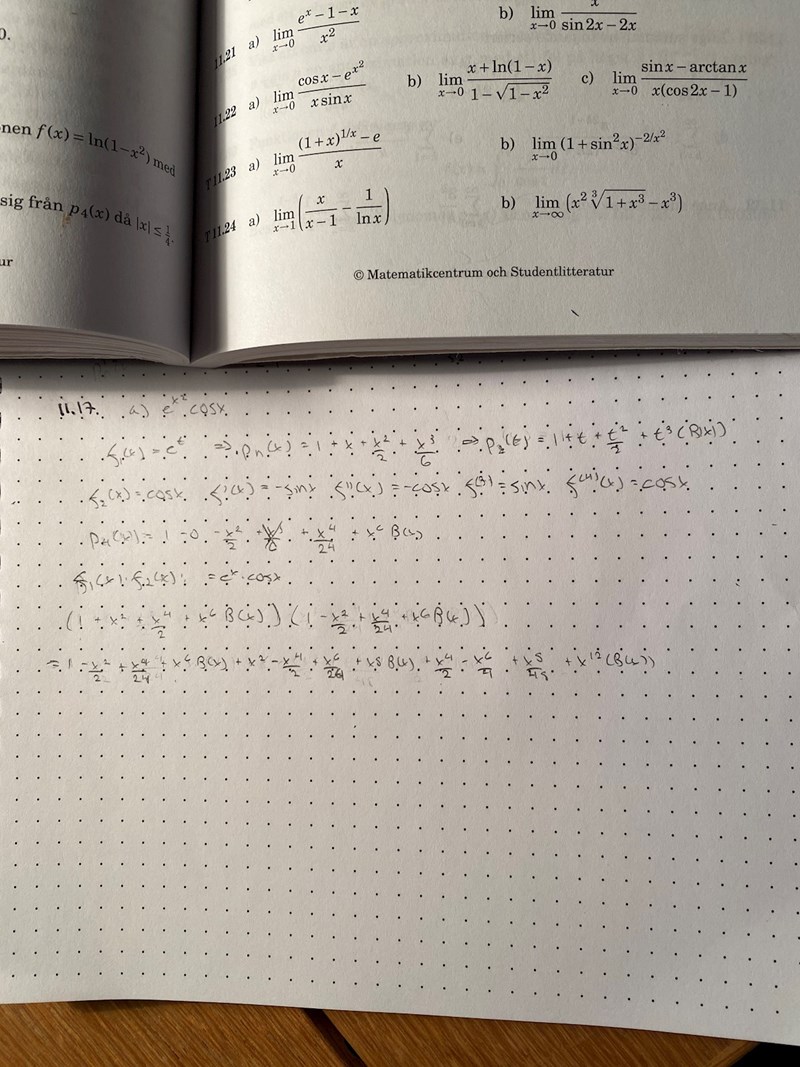 0.
nen f(x) = ln(1−x²) med
sig från p₄(x) då |x| ≤ 1/4.
ur
11.21 a) lim x→0 (eˣ − 1 − x)/x² b) lim x→0 x/(sin 2x − 2x)
11.22 a) lim x→0 (cos x − e^(x²))/(x sin x) b) lim x→0 (x + ln(1−x))/(1 − √(1−x²)) c) lim x→0 (sin x − arctan x)/(x(cos 2x − 1))
T11.23 a) lim x→0 ((1+x)^(1/x) − e)/x b) lim x→0 (1 + sin²x)^(−2/x²)
T11.24 a) lim x→1 (x/(x−1) − 1/ln x) b) lim x→∞ (x² ∛(1+x³) − x³)
© Matematikcentrum och Studentlitteratur
11.17. a) e^(x²) cosx.
f₁(x) = eᵗ ⇒ pₙ(x) = 1 + x + x²/2 + x³/6 ⇒ p₂(t) = 1 + t + t²/2 + t³(B(x))
f₂(x) = cosx f'(x) = −sinx f''(x) = −cosx f⁽³⁾ = sinx f⁽⁴⁾(x) = cosx
p₄(x) = 1 − 0 − x²/2 + x⁴/24 + x⁶ B(x)
f₁(x)·f₂(x) = eˣ·cosx
(1 + x² + x⁴/2 + x⁶ B(x))(1 − x²/2 + x⁴/24 + x⁶ B(x))
= 1 − x²/2 + x⁴/24 + x⁶ B(x) + x² − x⁴/2 + x⁶/24 + x⁸ B(x) + x⁴/2 − x⁶/4 + x⁸/48 + x¹² (B(x))